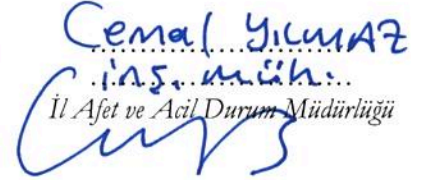 Cemal YILMAZ
inş. müh.
İl Afet ve Acil Durum Müdürlüğü